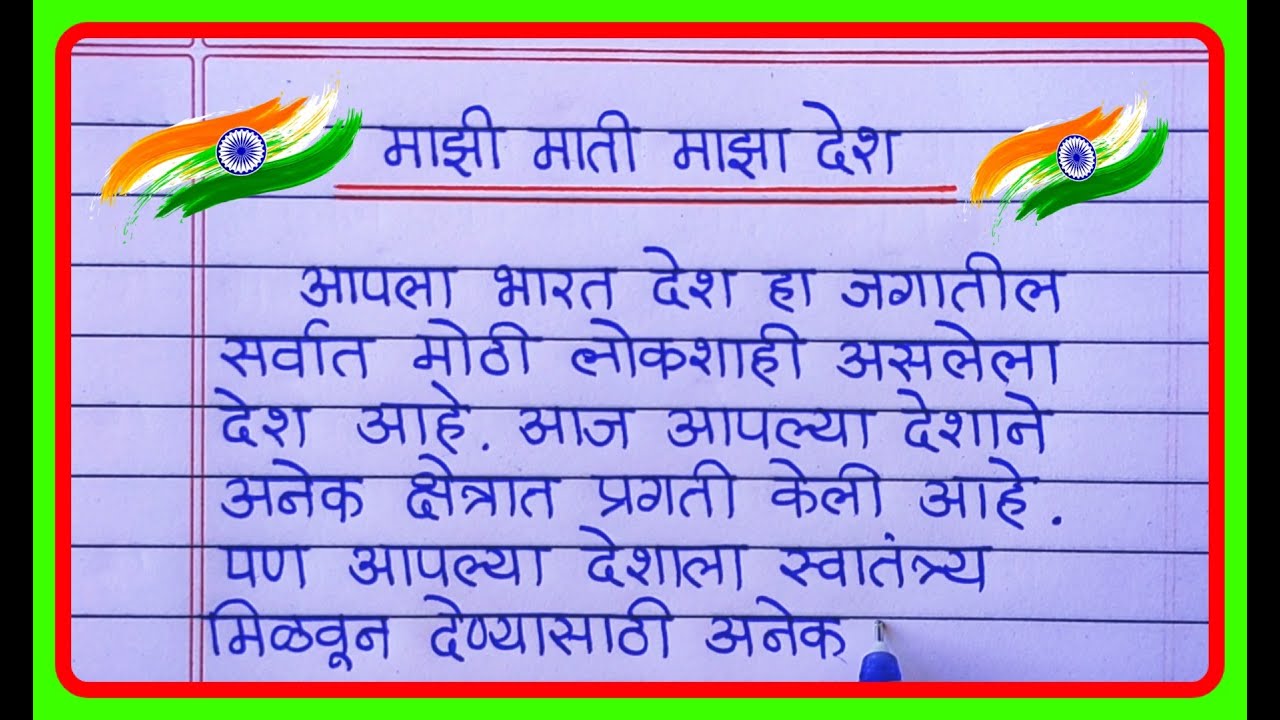 माझी माती माझा देश
आपला भारत देश हा जगातील
सर्वात मोठी लोकशाही असलेला
देश आहे. आज आपल्या देशाने
अनेक क्षेत्रात प्रगती केली आहे.
पण आपल्या देशाला स्वातंत्र्य
मिळवून देण्यासाठी अनेक